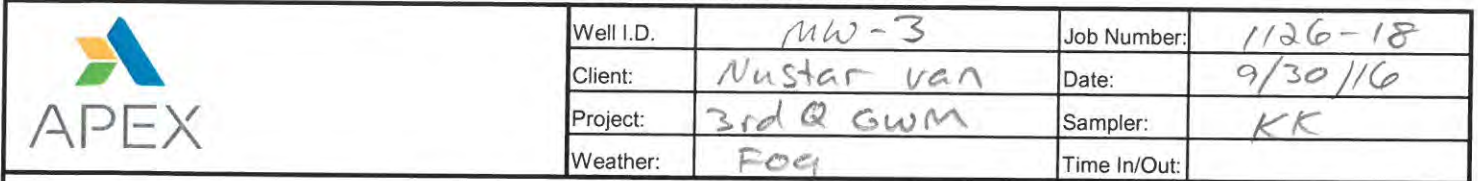 APEX
Well I.D. MW-3 Job Number: 1126-18
Client: Nustar van Date: 9/30/16
Project: 3rd Q GWM Sampler: KK
Weather: Fog Time In/Out: